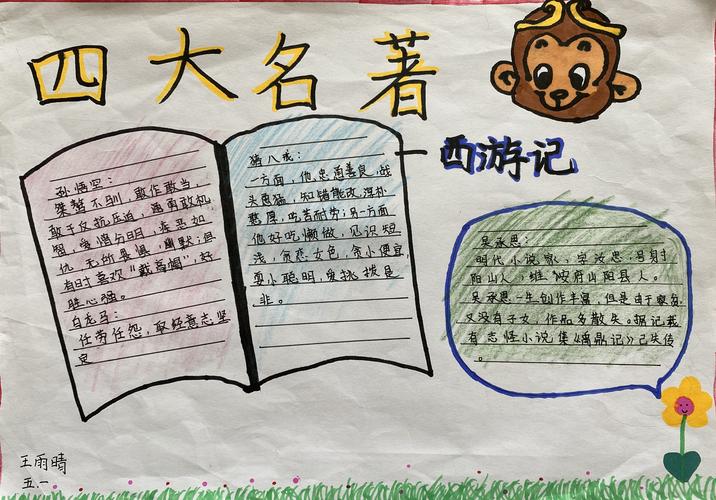 四大名著
西游记
孙悟空:
桀骜不驯,敢作敢当,
敢于反抗压迫,通勇敢机
智,爱憎分明,疾恶如
仇,无所畏惧,幽默;但
有时喜欢“戴高帽”,好
胜心强。
白龙马:
任劳任怨,取经意志坚
定
猪八戒:
一方面,他忠勇善良,战
头勇猛,知错能改,淳朴
憨厚,吃苦耐劳;另一方面
他好吃懒做,见识短
浅,贪恋女色,贪小便宜,
耍小聪明,爱挑拨是
非。
吴承恩:
明代小说家,字汝忠,号射
阳山人,淮安府山阳县人。
吴承恩一生创作丰富,但是由于家贫,
又没有子女,作品多散失。据记载
有志怪小说集《禹鼎记》已失传
。
王雨晴
五.一